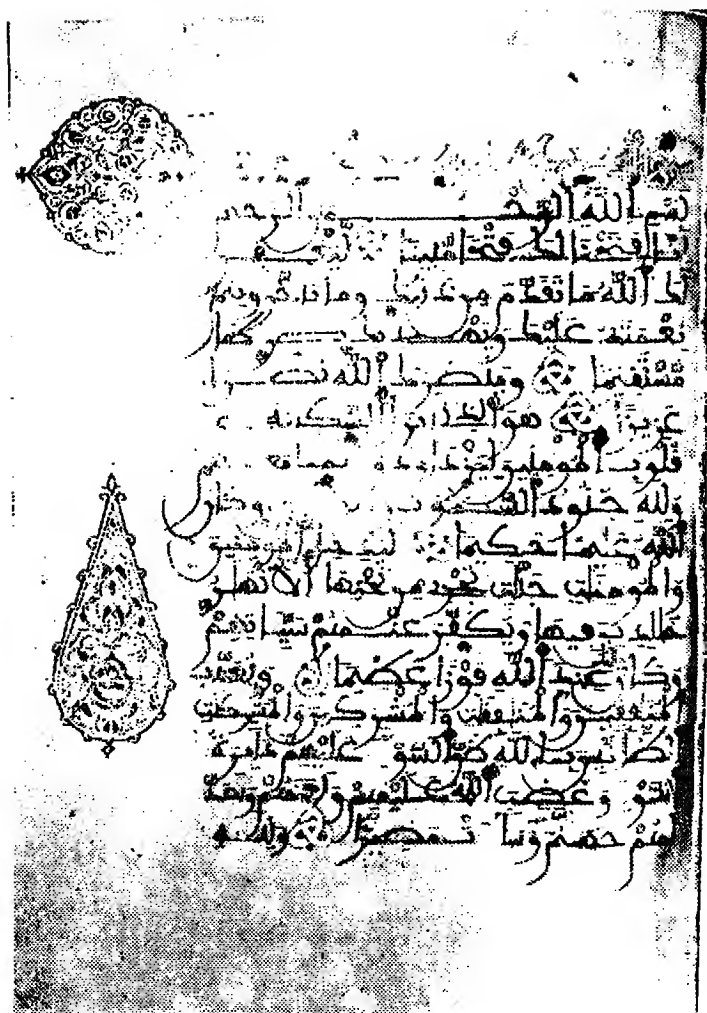 بسم الله الرحمن الرحيم
انا فتحنا لك فتحا مبينا ليغفر
لك الله ما تقدم من ذنبك وما تاخر ويتم
نعمته عليك ويهديك صراطا
مستقيما وينصرك الله نصرا
عزيزا هو الذي انزل السكينة في
قلوب المومنين ليزدادوا ايمانا مع
ولله جنود السموت وكان
الله عليما حكيما ليدخل المومنين
والمومنت جنت تجري من تحتها الانهر
خلدين فيها ويكفر عنهم سياتهم
وكان عند الله فوزا عظيما ويعذب
المنفقين والمنفقت والمشركين والمشركت
الظانين بالله ظن السوء عليهم دايرة
السوء وغضب الله عليهم ولعنهم واعد
لهم جهنم وساءت مصيرا ولله